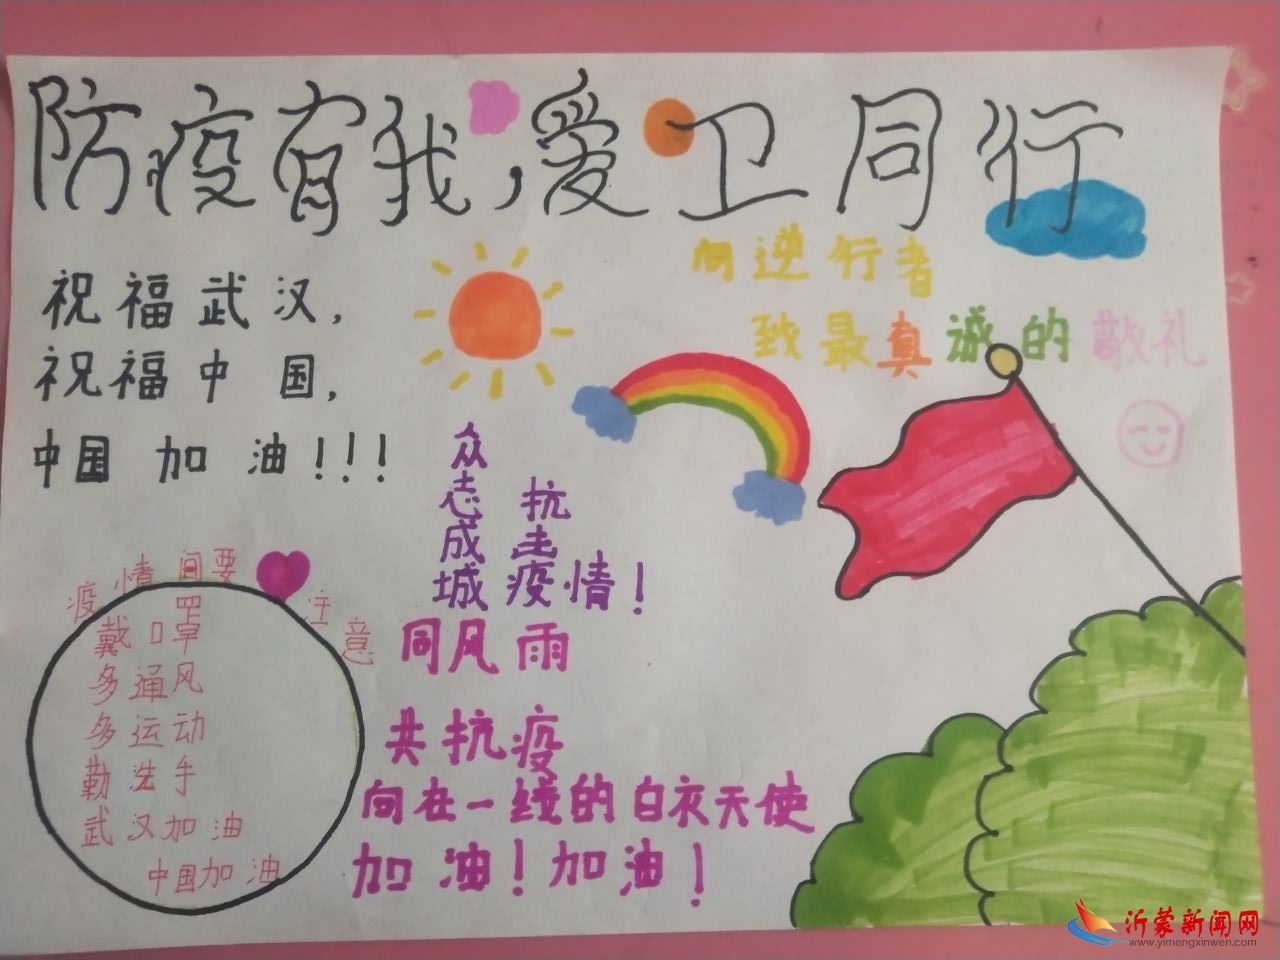 防疫有我，爱卫同行
祝福武汉，
祝福中国，
中国加油！！！
向逆行者
致最真诚的敬礼
众志成城
抗击疫情！
同风雨
共抗疫
向在一线的白衣天使
加油！加油！
疫情间要注意
戴口罩
多通风
多运动
勤洗手
武汉加油
中国加油
沂蒙新闻网
www.yimengxinwen.com